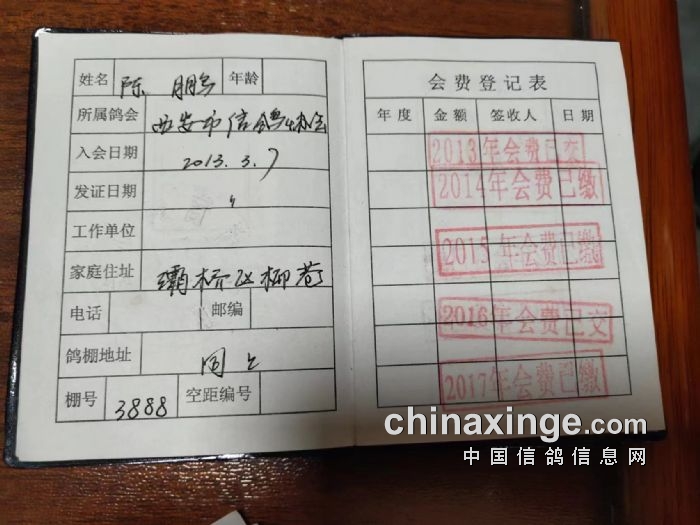 姓名 陈 鹏 年龄
所属鸽会 西安市信鸽协会
入会日期 2013.3.7
发证日期 〃
工作单位
家庭住址 灞桥区柳巷
电话 邮编
鸽棚地址 同上
棚号 3888 空距编号
会费登记表
年度 金额 签收人 日期
2013年会费已交
2014年会费已缴
2015年会费已缴
2016年会费已交
2017年会费已缴
chinaxinge.com
中国信鸽信息网